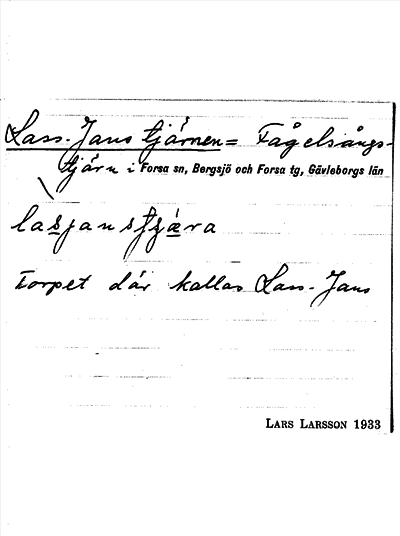 Lass-Jans tjärnen = Fågelsångs-
tjärn i Forsa sn, Bergsjö och Forsa tg, Gävleborgs län
Torpet där kallas Lass-Jans
LARS LARSSON 1933